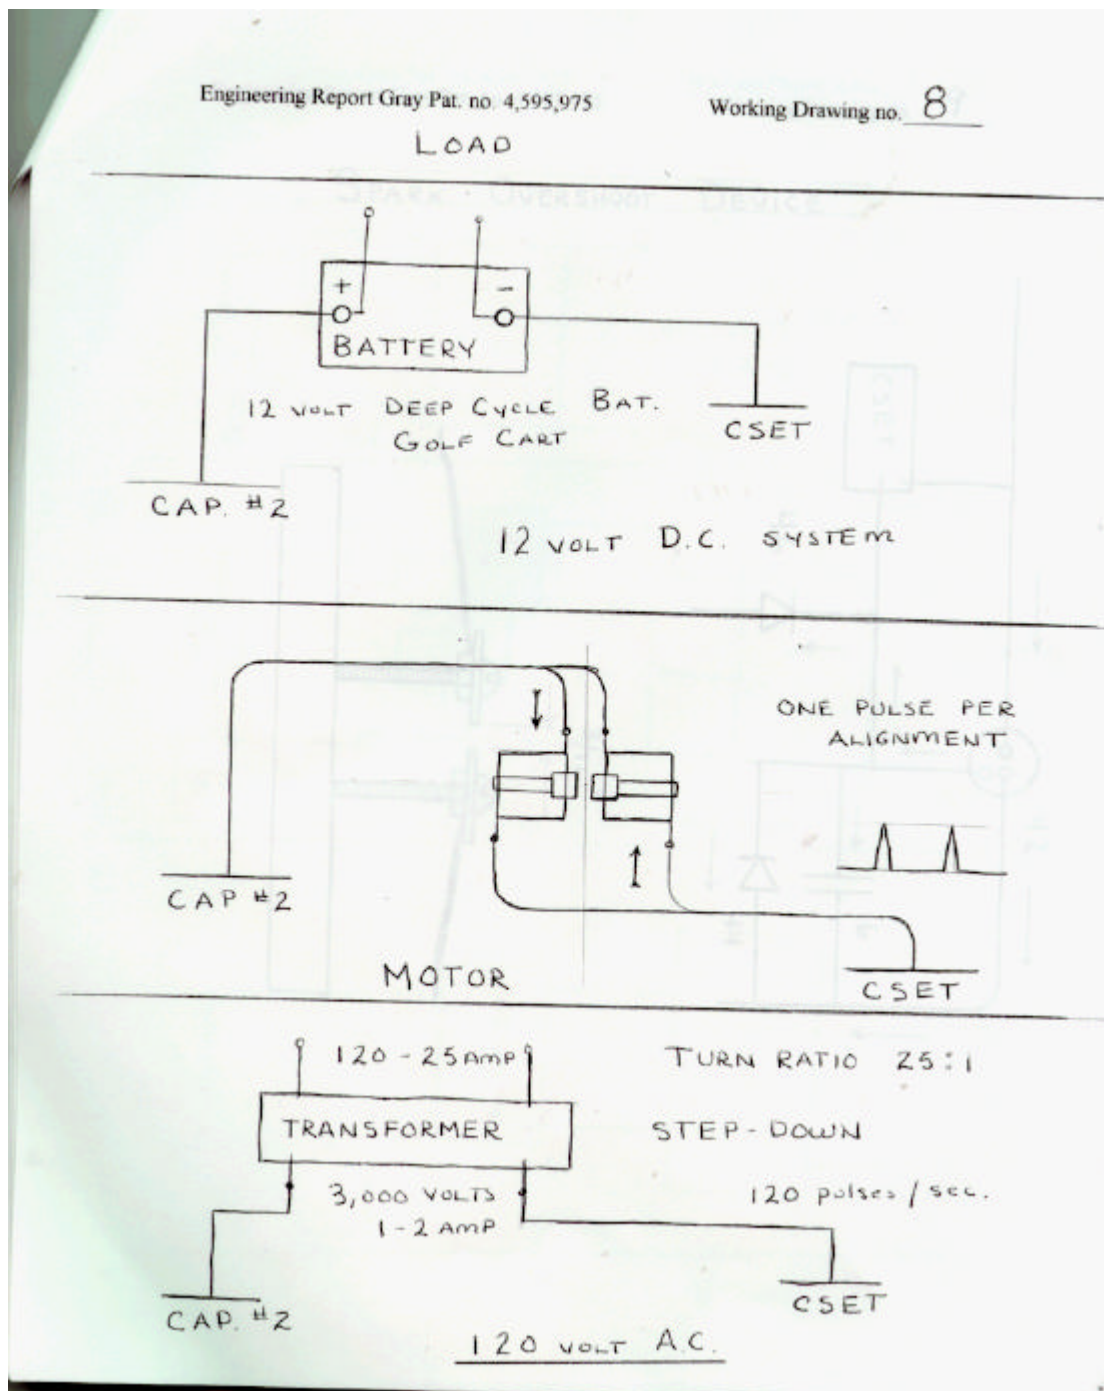 Engineering Report Gray Pat. no. 4,595,975
Working Drawing no. 8
LOAD
SPARK - OVERSHOOT DEVICE
+
-
BATTERY
12 VOLT DEEP CYCLE BAT.
GOLF CART
CSET
CAP. #2
12 VOLT D.C. SYSTEM
ONE PULSE PER
ALIGNMENT
CAP #2
MOTOR
CSET
120 - 25 AMP
TURN RATIO 25:1
TRANSFORMER
STEP-DOWN
3,000 VOLTS
1-2 AMP
120 pulses/sec.
CAP. #2
CSET
120 VOLT A.C.